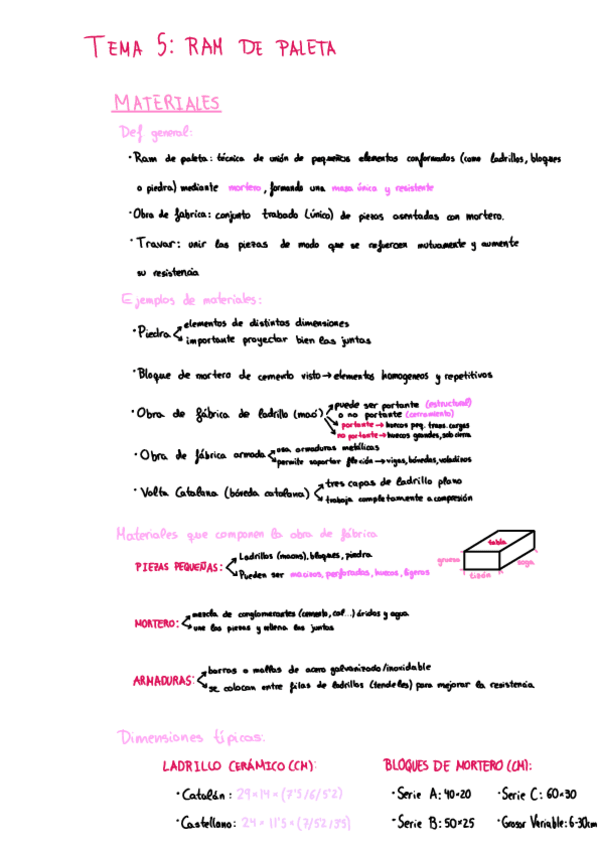 TEMA 5: RAM DE PALETA
MATERIALES
Def general:
·Ram de paleta: técnica de unión de pequeños elementos conformados (como ladrillos, bloques
o piedra) mediante mortero, formando una masa única y resistente
·Obra de fabrica: conjunto trabado (único) de piezas asentadas con mortero.
·Travar: unir las piezas de modo que se refuercen mutuamente y aumente
su resistencia
Ejemplos de materiales:
·Piedra
elementos de distintas dimensiones
importante proyectar bien las juntas
·Bloque de mortero de cemento visto→elementos homogeneos y repetitivos
·Obra de fábrica de ladrillo (maó)
puede ser portante (estructural)
o no portante (cerramiento)
portante→huecos peq. trans. cargas
no portante→huecos grandes, solo cierra
·Obra de fábrica armada
usa armaduras metálicas
permite soportar flexión→vigas, bóvedas, voladizos
·Volta Catalana (bóveda catalana)
tres capas de ladrillo plano
trabaja completamente a compresión
Materiales que componen la obra de fábrica
PIEZAS PEQUEÑAS:
Ladrillos (maons), bloques, piedra
Pueden ser macizos, perforados, huecos, ligeros
tabla
grueso
soga
tizón
MORTERO:
mezcla de conglomerantes (cemento, cal...) áridos y agua
une las piezas y rellena las juntas
ARMADURAS:
barras o mallas de acero galvanizado/inoxidable
se colocan entre filas de ladrillos (tendeles) para mejorar la resistencia
Dimensiones típicas:
LADRILLO CERÁMICO (CM):
·Catalán: 29×14×(7'5/6/5'2)
·Castellano: 24×11'5×(7/5'2/3'5)
BLOQUES DE MORTERO (CM):
·Serie A: 40×20
·Serie C: 60×30
·Serie B: 50×25
·Grosor Variable: 6-30cm